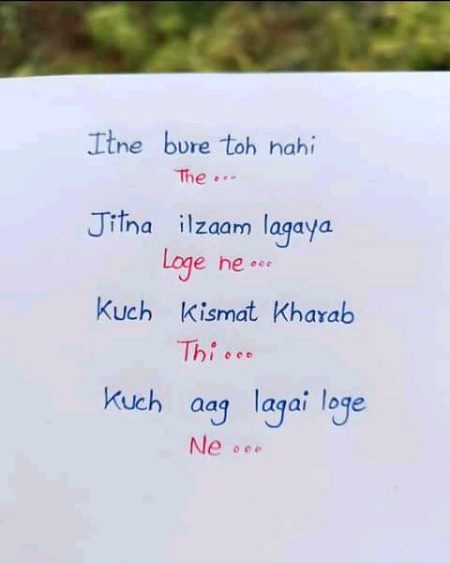 Itne bure toh nahi
The ...
Jitna ilzaam lagaya
Loge ne ...
Kuch Kismat Kharab
Thi ...
Kuch aag lagai loge
Ne ...